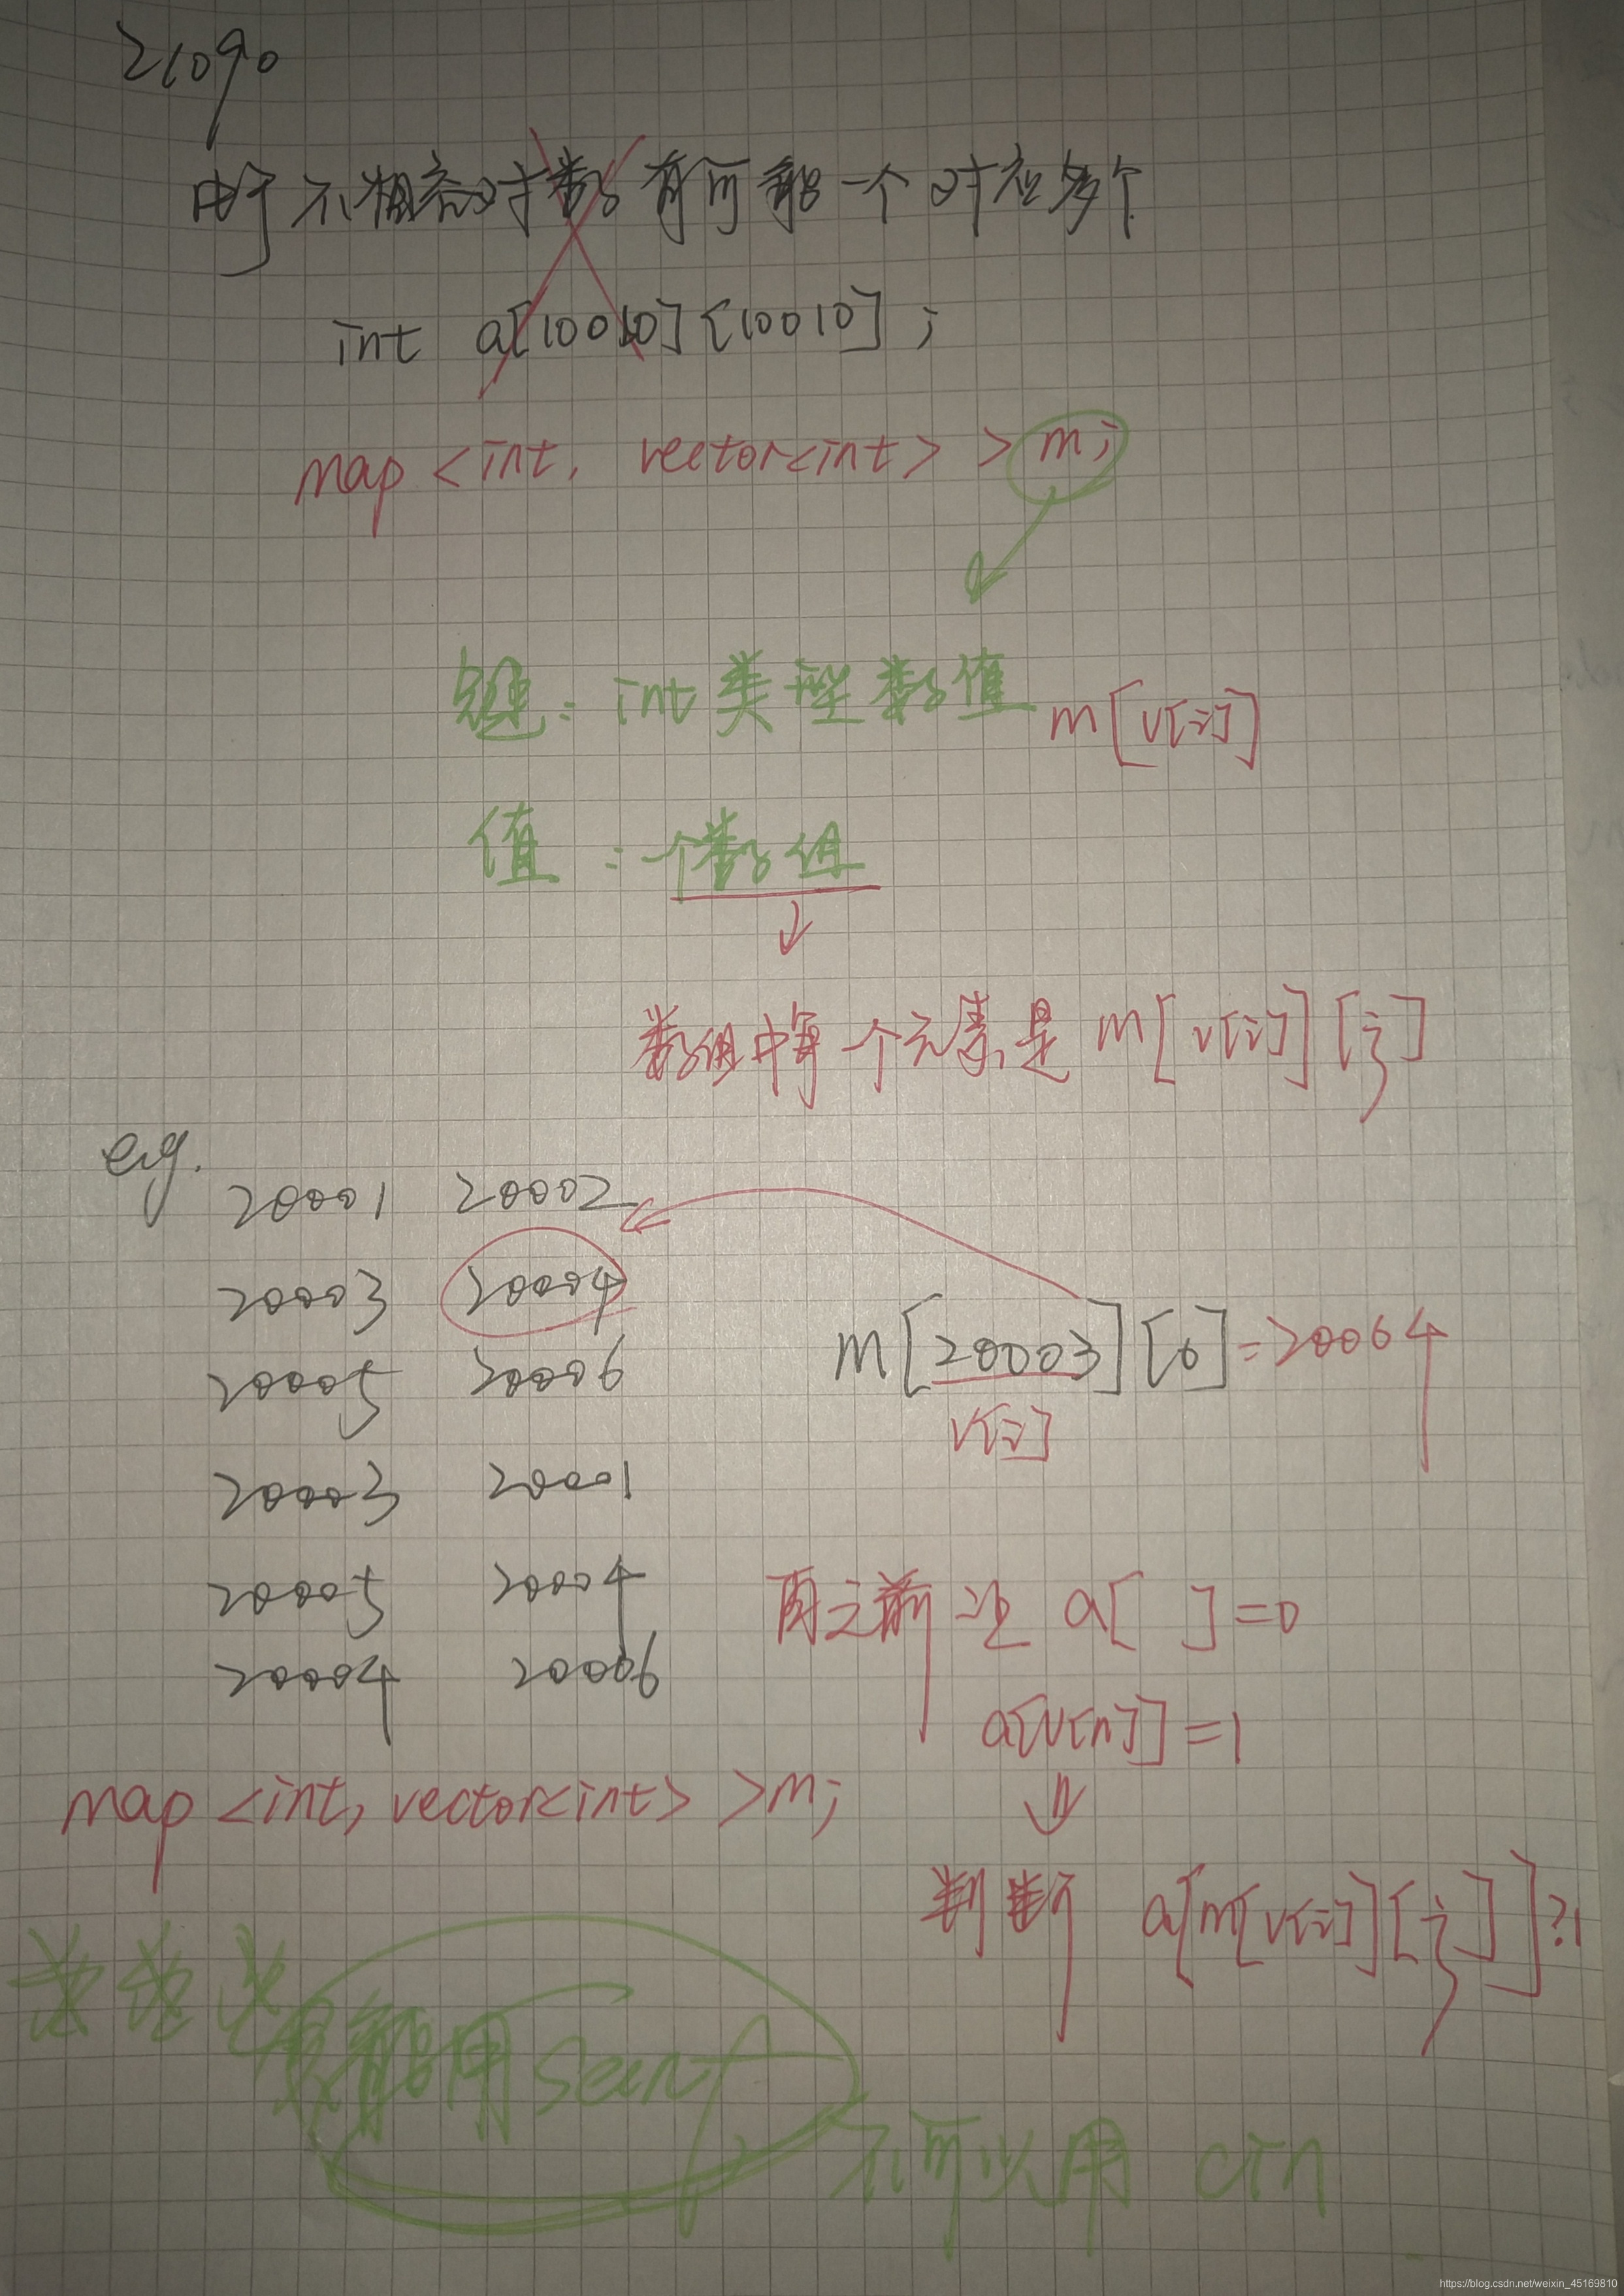 21090
由于不相容对数有可能一个对应多个
int a[10010][10010];
map<int, vector<int> > m;
键：int类型数值 m[v[i]]
值：一个数组
数组中每个元素是 m[v[i]][j]
eg.
20001 20002
20003 20004
20005 20006
m[20003][0]=20004
v[i]
20003 20001
20005 20004
20004 20006
再之前让 a[ ]=0
a[v[n]]=1
map<int, vector<int> >m;
判断 a[m[v[i]][j]]?1
只能用scanf
不可以用 cin
https://blog.csdn.net/weixin_45169810